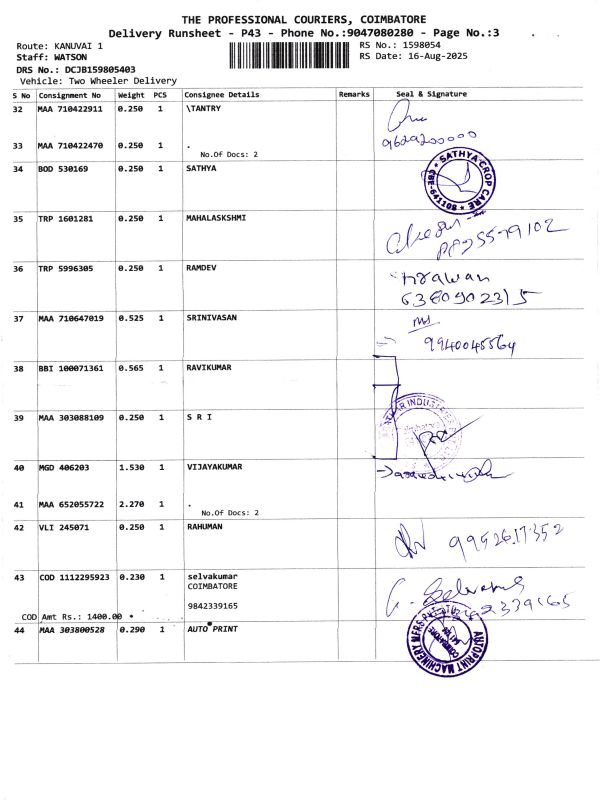 THE PROFESSIONAL COURIERS, COIMBATORE
Delivery Runsheet - P43 - Phone No.:9047080280 - Page No.:3
Route: KANUVAI 1
RS No.: 1598054
Staff: WATSON
RS Date: 16-Aug-2025
DRS No.: DCJB159805403
Vehicle: Two Wheeler Delivery
S No Consignment No Weight PCS Consignee Details Remarks Seal & Signature
32 MAA 710422911 0.250 1 \TANTRY
9629200000
33 MAA 710422470 0.250 1 .
No.Of Docs: 2
34 BOD 530169 0.250 1 SATHYA
SATHYA CROP CARE
35 TRP 1601281 0.250 1 MAHALASKSHMI
36 TRP 5996305 0.250 1 RAMDEV
6380902315
37 MAA 710647019 0.525 1 SRINIVASAN
9940045564
38 BBI 100071361 0.565 1 RAVIKUMAR
39 MAA 303088109 0.250 1 S R I
40 MGD 406203 1.530 1 VIJAYAKUMAR
41 MAA 652055722 2.270 1 .
No.Of Docs: 2
42 VLI 245071 0.250 1 RAHUMAN
9952617352
43 COD 1112295923 0.230 1 selvakumar
COIMBATORE
9842339165
COD Amt Rs.: 1400.00
44 MAA 303800528 0.290 1 AUTO PRINT
AUTOPRINT MACHINERY MFRS
COIMBATORE